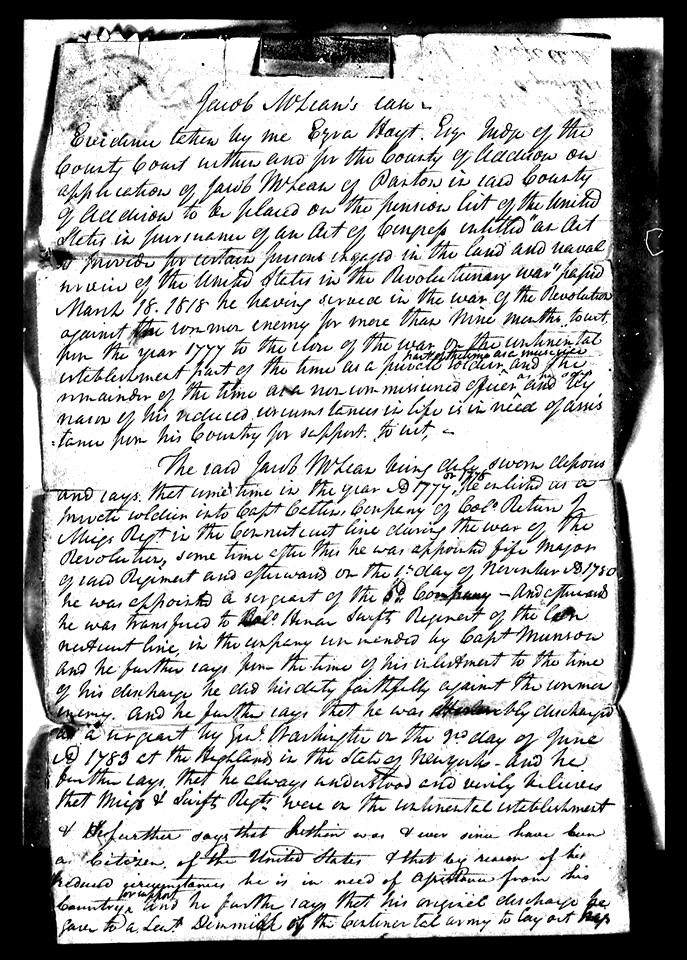 Jacob McLean's case
Evidence taken by me Ezra Hoyt. Esq Judge of the
County Court within and for the County of Addison on
application of Jacob McLean of Panton in said County
of Addison to be placed on the pension list of the United
States in pursuance of an Act of Congress entitled "an Act
to provide for certain persons engaged in the land and naval
service of the United States in the Revolutionary war" passed
March 18. 1818 he having served in the war of the Revolution
against the common enemy for more than Nine months. to wit.
from the year 1777 to the close of the war on the continental
part of the time as a musician
establishment part of the time as a private soldier and the
remainder of the time as a non commissioned officer as he says and by
reason of his reduced circumstances in life is in need of assis
tance from his Country for support. to wit,
The said Jacob McLean being duly sworn deposes
or 1778
and says. that some time in the year AD 1777 He enlisted as a
private soldier into Capt Company of Colo Return J
Meigs Regt in the Connecticut line during the war of the
Revolution, some time after this he was appointed fife Major
of said Regiment and afterward on the 1st day of November AD 1780
he was appointed a sergeant of the Company - And afterward
he was transfered to Colo Heman Swifts Regiment of the Con
necticut line, in the company commanded by Capt Munson
and he further says from the time of his enlistment to the time
of his discharge he did his duty faithfully against the common
enemy. and he further says that he was Honorably discharged
as a sergeant by Genl Washington on the 3rd day of June
AD 1783 at the Highlands in the State of Newyork - and he
further says, that he always understood and verily believes
that Meigs & Swifts Regts were on the continental establishment
& He further says that he then was & ever since have been
a Citizen of the United States & that by reason of his
reduced circumstances he is in need of assistance from his
for support
Country and he further says that his original discharge he
gave to a Leut Dimmick of the Continental army to lay out his